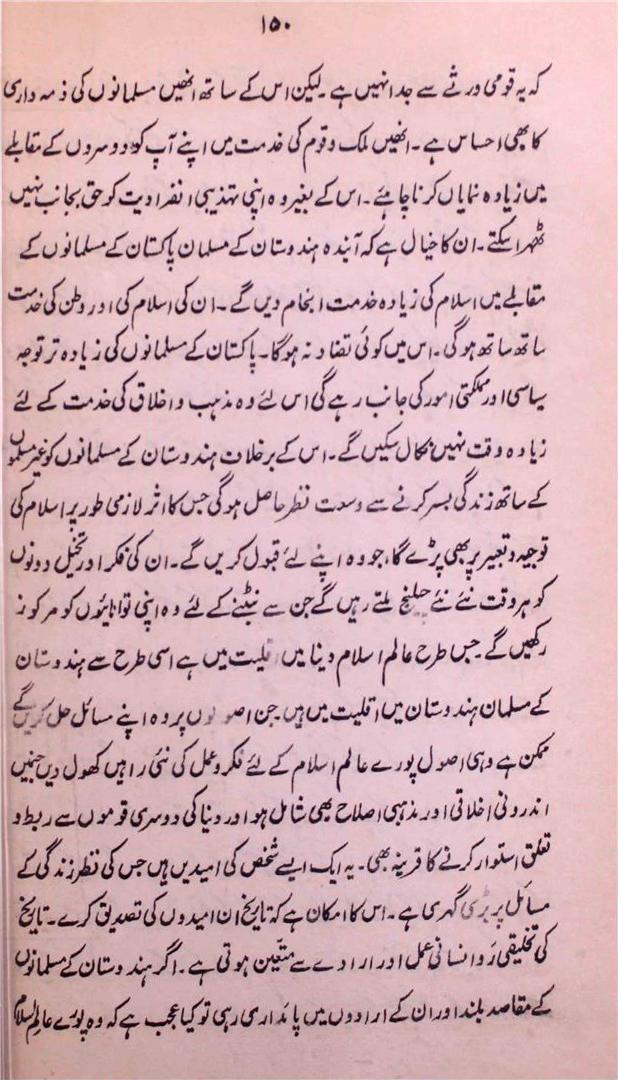 ۱۵۰
کہ یہ قومی ورثے سے جدا نہیں ہے ۔ لیکن اس کے ساتھ انھیں مسلمانوں کی ذمہ داری
کا بھی احساس ہے ۔ انھیں ملک و قوم کی خدمت میں اپنے آپ کو دوسروں کے مقابلے
میں زیادہ نمایاں کرنا چاہئے ۔ اس کے بغیر وہ اپنی تہذیبی انفرادیت کو حق بجانب نہیں
ٹھہرا سکتے ۔ ان کا خیال ہے کہ آیندہ ہندوستان کے مسلمان پاکستان کے مسلمانوں کے
مقابلے میں اسلام کی زیادہ خدمت انجام دیں گے ۔ ان کی اسلام کی اور وطن کی خدمت
ساتھ ساتھ ہوگی ۔ اس میں کوئی تضاد نہ ہوگا ۔ پاکستان کے مسلمانوں کی زیادہ تر توجہ
سیاسی اور مملکتی امور کی جانب رہے گی اس لئے وہ مذہب و اخلاق کی خدمت کے لئے
زیادہ وقت نہیں نکال سکیں گے ۔ اس کے برخلاف ہندوستان کے مسلمانوں کو غیر مسلموں
کے ساتھ زندگی بسر کرنے سے وسعت نظر حاصل ہوگی جس کا اثر لازمی طور پر اسلام کی
توجیہ و تعبیر پر بھی پڑے گا، جو وہ اپنے لئے قبول کریں گے ۔ ان کی فکر اور تخیل دونوں
کو ہر وقت نئے نئے چیلنج ملتے رہیں گے جن سے نبٹنے کے لئے وہ اپنی توانائیوں کو مرکوز
رکھیں گے ۔ جس طرح عالم اسلام دنیا میں اقلیت میں ہے اسی طرح سے ہندوستان
کے مسلمان ہندوستان میں اقلیت میں ہیں ۔ جن اصولوں پر وہ اپنے مسائل حل کریں گے
ممکن ہے وہی اصول پورے عالم اسلام کے لئے فکر و عمل کی نئی راہیں کھول دیں جنہیں
اندرونی اخلاقی اور مذہبی اصلاح بھی شامل ہو اور دنیا کی دوسری قوموں سے ربط و
تعلق استوار کرنے کا قرینہ بھی ۔ یہ ایک ایسے شخص کی امیدیں ہیں جس کی نظر زندگی کے
مسائل پر بڑی گہری ہے ۔ اس کا امکان ہے کہ تاریخ ان امیدوں کی تصدیق کرے ۔ تاریخ
کی تخلیقی رَو انسانی عمل اور ارادے سے متعین ہوتی ہے ۔ اگر ہندوستان کے مسلمانوں
کے مقاصد بلند اور ان کے ارادوں میں پائداری رہی تو کیا عجب ہے کہ وہ پورے عالم اسلام